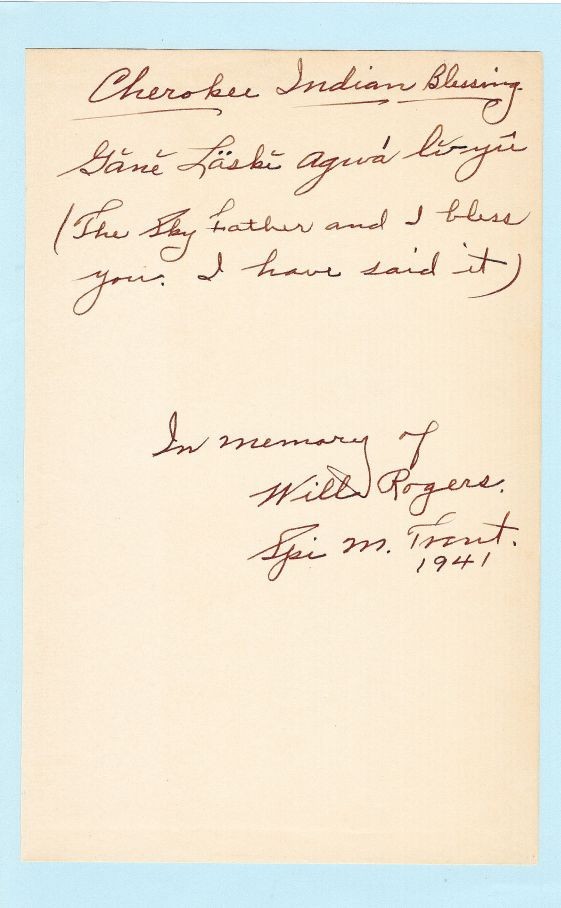 Cherokee Indian Blessing.
Gănĕ Läskĕ Agwá lĭ-yû
(The Sky Father and I bless
you. I have said it)
In memory of
Will Rogers.
Spi M. Trout.
1941